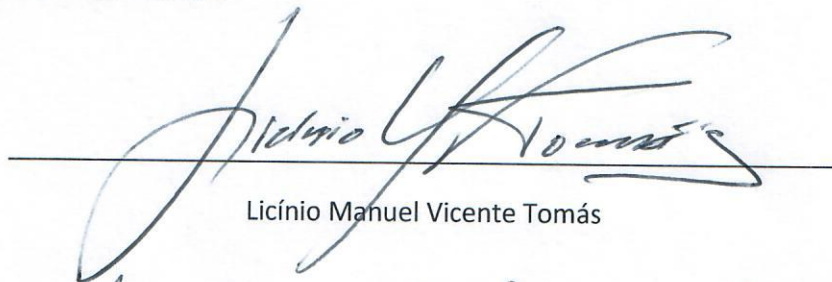 Licínio V. Tomás
Licínio Manuel Vicente Tomás